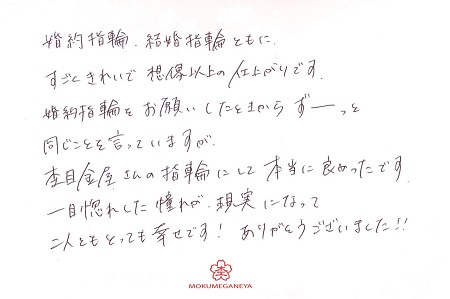 婚約指輪、結婚指輪ともに、
すごくきれいで想像以上の仕上がりです。
婚約指輪をお願いしたときからずーっと
同じことを言っていますが、
杢目金屋さんの指輪にして本当に良かったです。
一目惚れした憧れが、現実になって
二人ともとっても幸せです！ ありがとうございました!!
杢
MOKUMEGANEYA